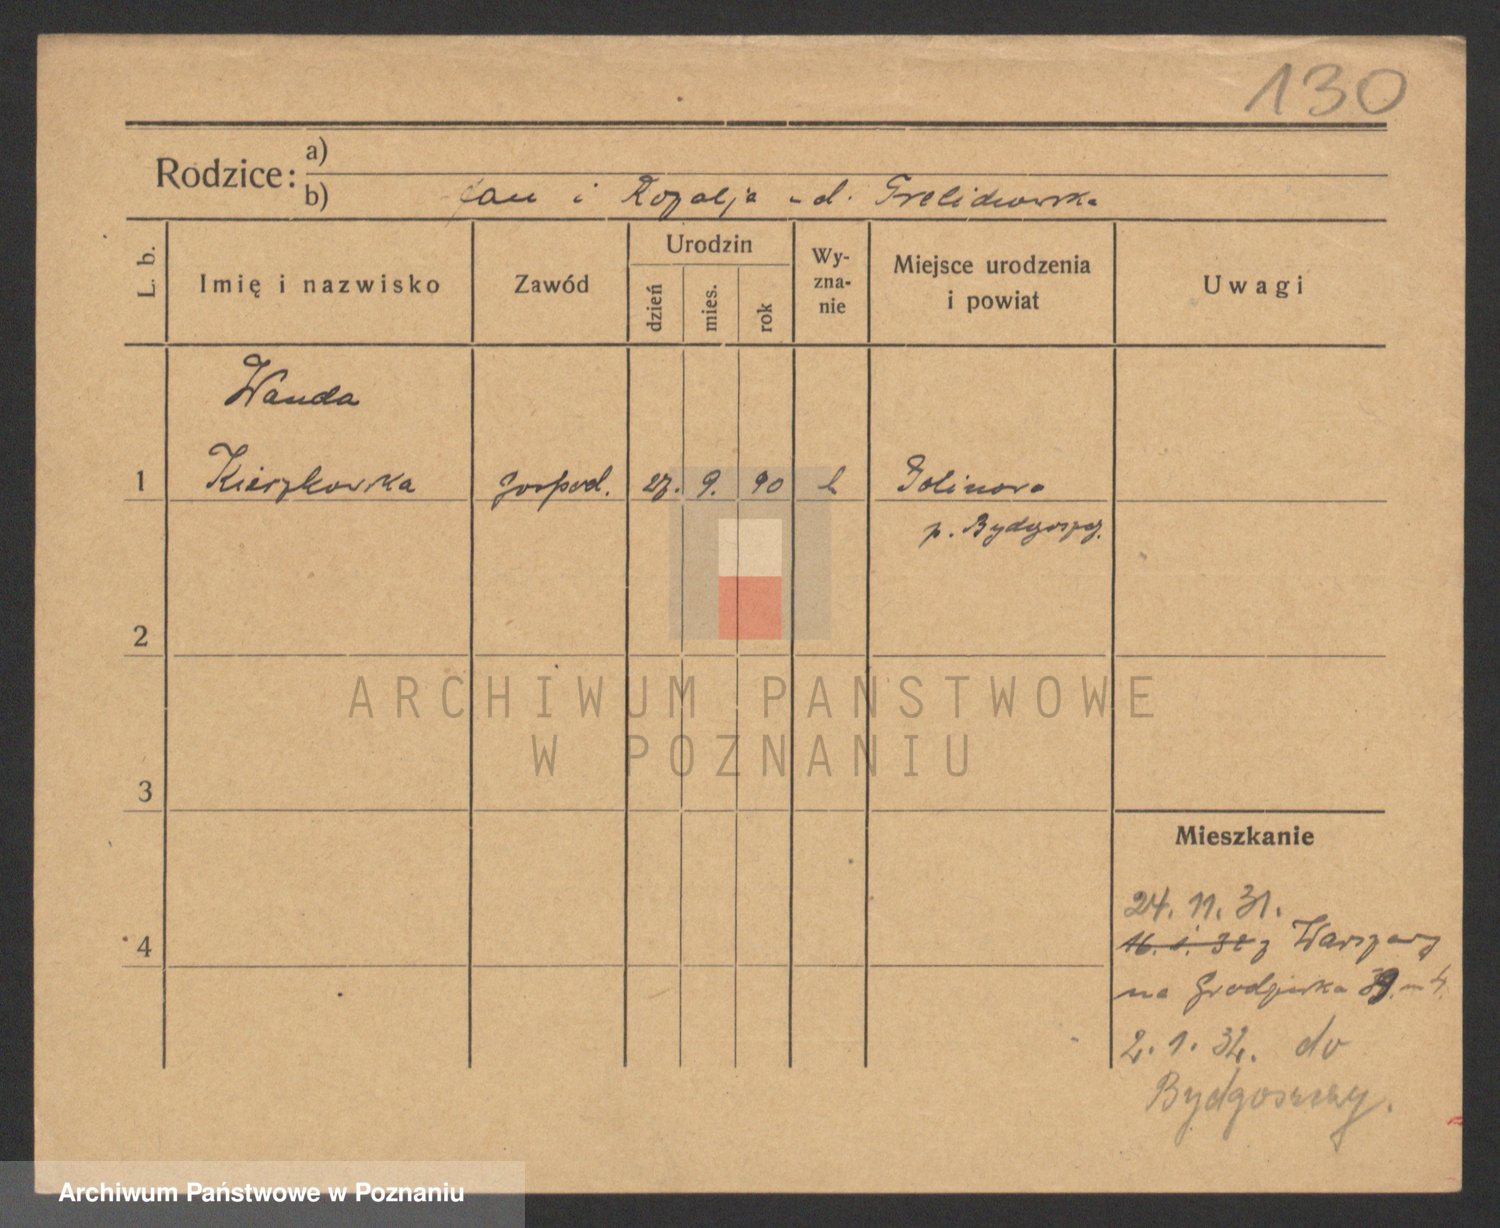 130
Rodzice: a)
b) Jan i Rozalja z d.
L. b.
Imię i nazwisko
Zawód
Urodzin
dzień
mies.
rok
Wy-
zna-
nie
Miejsce urodzenia
i powiat
Uwagi
Wanda
1 Kierzkowska gospod. 27. 9. 90
p. Bydgoszcz.
2
ARCHIWUM PAŃSTWOWE
W POZNANIU
3
Mieszkanie
24. 11. 31.
16. 1. 32 z Warszawy
na 39. m 4.
4
2. 1. 32. do
Bydgoszczy.
Archiwum Państwowe w Poznaniu